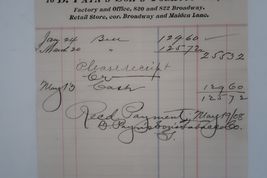 Factory and Office, 820 and 822 Broadway.
Retail Store, cor. Broadway and Maiden Lane.
Jany 24 Bill 129 60
March 20 " 125 72
255 32
Please receipt
Cr
May 13 Cash 129 60
125 72
Recd Payment, May 19/08
Co.